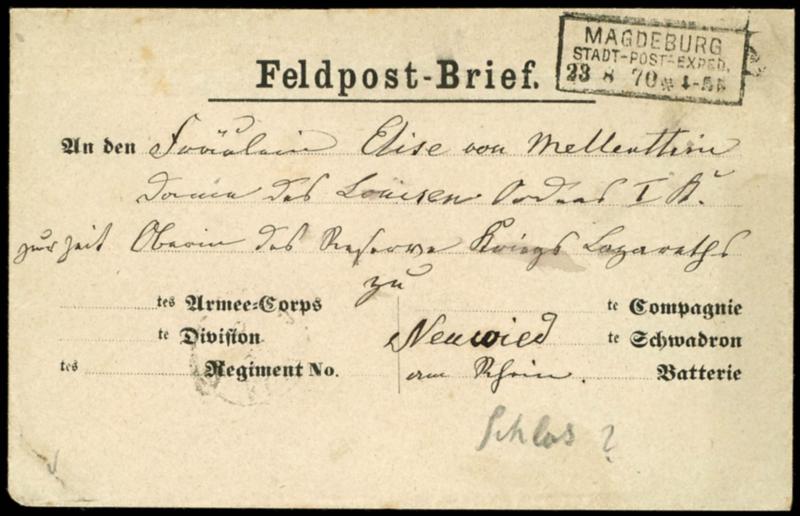 MAGDEBURG
STADT-POST-EXPED.
23 8 70 * 4-5N
Feldpost-Brief.
An den Fräulein Elise von Mellenthin
Dame des Louisen Ordens I Kl.
zur Zeit Oberin des Reserve Kriegs Lazareths
zu
tes Armee-Corps
te Compagnie
te Division
Neuwied
te Schwadron
tes Regiment No.
am Rhein.
Batterie
Schlos ?